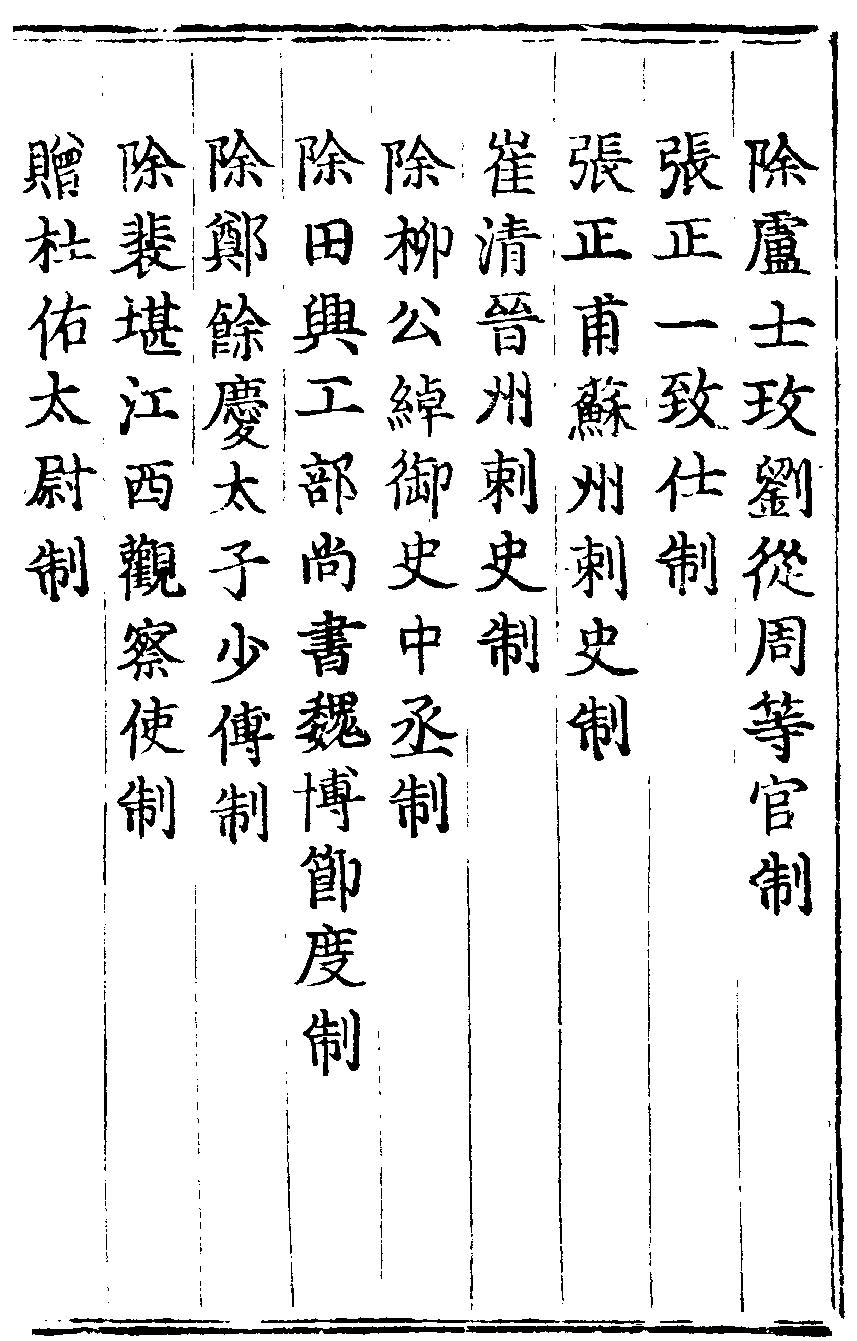 除盧士玫劉從周等官制
張正一致仕制
張正甫蘇州刺史制
崔清晉州刺史制
除柳公綽御史中丞制
除田興工部尚書魏博節度制
除鄭餘慶太子少傅制
除裴堪江西觀察使制
贈杜佑太尉制